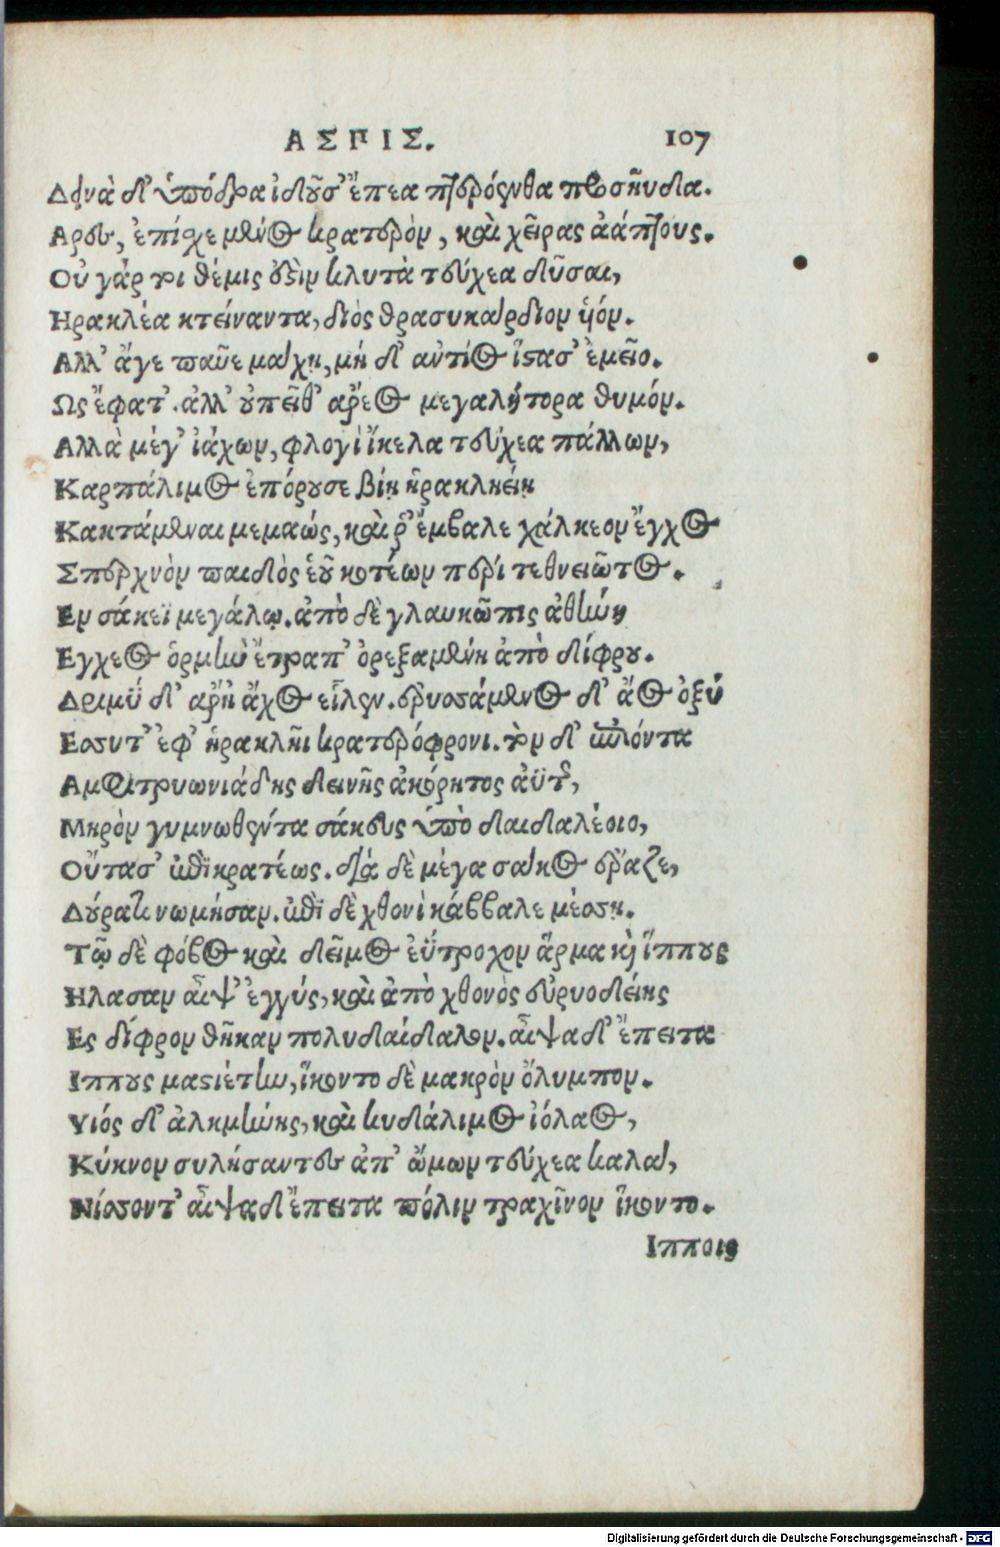 ΑΣΠΙΣ. 107
Δεινὰ δ' ὑπόδρα ἰδοῦσ' ἔπεα πτερόεντα προσηύδα.
Αρες, ἐπίσχε μένος κρατερὸν, καὶ χεῖρας ἀάπτους.
Οὐ γάρ τοι θέμις ὅξὶν κλυτὰ τεύχεα δῦσαι,
Ηρακλέα κτείναντα, διὸς θρασυκάρδιον ὑόν.
Αλλ' ἄγε παῦε μάχῃ, μὴ δ' αὐτίος ἵστασ' ἐμεῖο.
Ως ἔφατ'. ἀλλ' οὐ πεῖθ' ἄρεος μεγαλήτορα θυμόν.
Αλλὰ μέγ' ἰάχων, φλογὶ ἴκελα τεύχεα πάλλων,
Καρπάλιμος ἐπόρουσε βίῃ ἡρακληείῃ
Κακτάμεναι μεμαώς, καὶ ῥ' ἔμβαλε χάλκεον ἔγχος
Σπερχνὸν παιδὸς ἑοῦ κοτέων περὶ τεθνειῶτος.
Εν σάκεϊ μεγάλῳ. ἀπὸ δὲ γλαυκῶπις ἀθήνη
Εγχεος ὁρμὴν ἔτραπ' ὀρεξαμένη ἀπὸ δίφρου.
Δριμὺ δ' ἄρη ἄχος εἷλεν. ἐρυσσάμενος δ' ἄος ὀξὺ
Εσσυτ' ἐφ' ἡρακλῆι κρατερόφρονι. τὸν δ' ἐπιόντα
Αμφιτρυωνιάδης δεινῆς ἀκόρητος ἀϋτῆς,
Μηρὸν γυμνωθέντα σάκευς ὑπὸ δαιδαλέοιο,
Οὔτασ' ἐπικρατέως. διὰ δὲ μέγα σάκος ἔραζε,
Δούρατι νωμήσαν. ἐπὶ δὲ χθονὶ κάββαλε μέσσῃ.
Τῷ δὲ φόβος καὶ δεῖμος ἐΰτροχον ἅρμα καὶ ἵππους
Ηλασαν αἶψ' ἐγγύς, καὶ ἀπὸ χθονὸς εὐρυοδείης
Ες δίφρον θῆκαν πολυδαίδαλον. αἶψα δ' ἔπειτα
Ιππους μαστιέτην, ἵκοντο δὲ μακρὸν ὄλυμπον.
Υιός δ' ἀλκμήνης, καὶ κυδάλιμος ἰόλαος,
Κύκνον συλήσαντες ἀπ' ὤμων τεύχεα καλά,
Νίσσοντ' αἶψα δ' ἔπειτα πόλιν τραχῖνον ἵκοντο.
Ιπποις
Digitalisierung gefördert durch die Deutsche Forschungsgemeinschaft - DFG